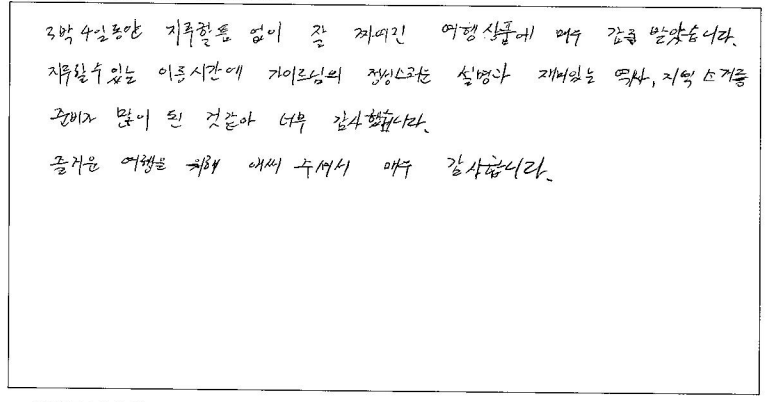 3박 4일동안 지루할틈 없이 잘 짜여진 여행상품에 매우 감동 받았습니다.
지루할수있는 이동시간에 가이드님의 정성스러운 설명과 재미있는 역사, 지역 소개등
준비가 많이 된 것같아 너무 감사했습니다.
즐거운 여행을 위해 애써 주셔서 매우 감사합니다.